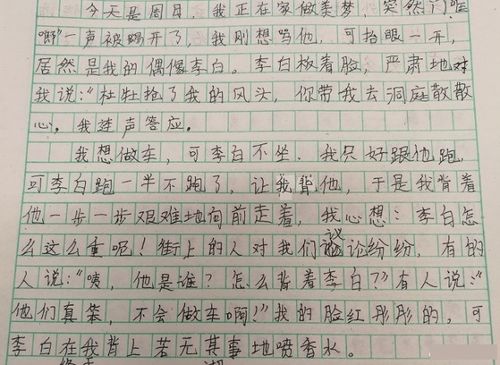 今天是周日，我正在家做美梦，突然门"哐
啷"一声被踢开了，我刚想骂他，可抬眼一开，
居然是我的偶像李白。李白板着脸，严肃地对
我说："杜牡抢了我的风头，你带我去洞庭散散
心。我连声答应。
我想做车，可李白不坐．我只好跟他跑，
可李白跑一半不跑了，让我背他，于是我背着
他一步一步艰难地向前走着，我心想：李白怎
么这么重呢！街上的人对我们议论纷纷，有的
人说："咦，他是谁？怎么背着李白？"有人说："
他们真笨，不会做车啊！"我的脸红彤彤的，可
李白在我背上若无其事地喷香水。